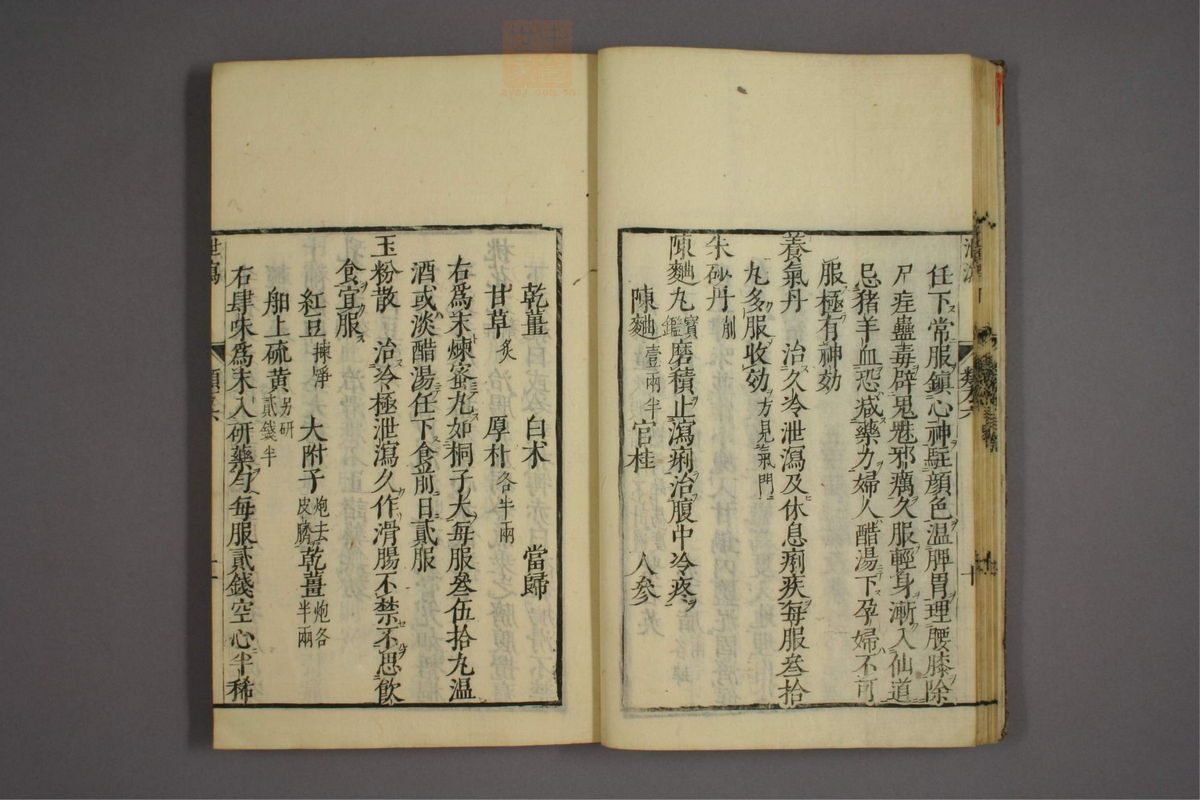 任下常服鎮心神駐顔色温脾胃理腰膝除
尸疰蠱毒辟鬼魅邪癘久服輕身漸入仙道
忌猪羊血恐减藥力婦人醋湯下孕婦不可
服極有神効
養氣丹 治久冷泄瀉及休息痢疾每服叁拾
丸多服收効方見氣門
朱砂丹
陳麯丸寶鑑磨積止瀉痢治腹中冷疼
陳麯壹兩半 官桂 人參
乾薑 白朮 當歸
甘草炙 厚朴各半兩
右爲末煉蜜丸如桐子大每服叁伍拾丸温
酒或淡醋湯任下食前日貳服
玉粉散 治冷極泄瀉久作滑腸不禁不思飲
食宜服
紅豆揀淨 大附子炮去皮臍 乾薑炮各半兩
舶上硫黄另研貳錢半
右肆味爲末入研藥勻每服貳錢空心半稀